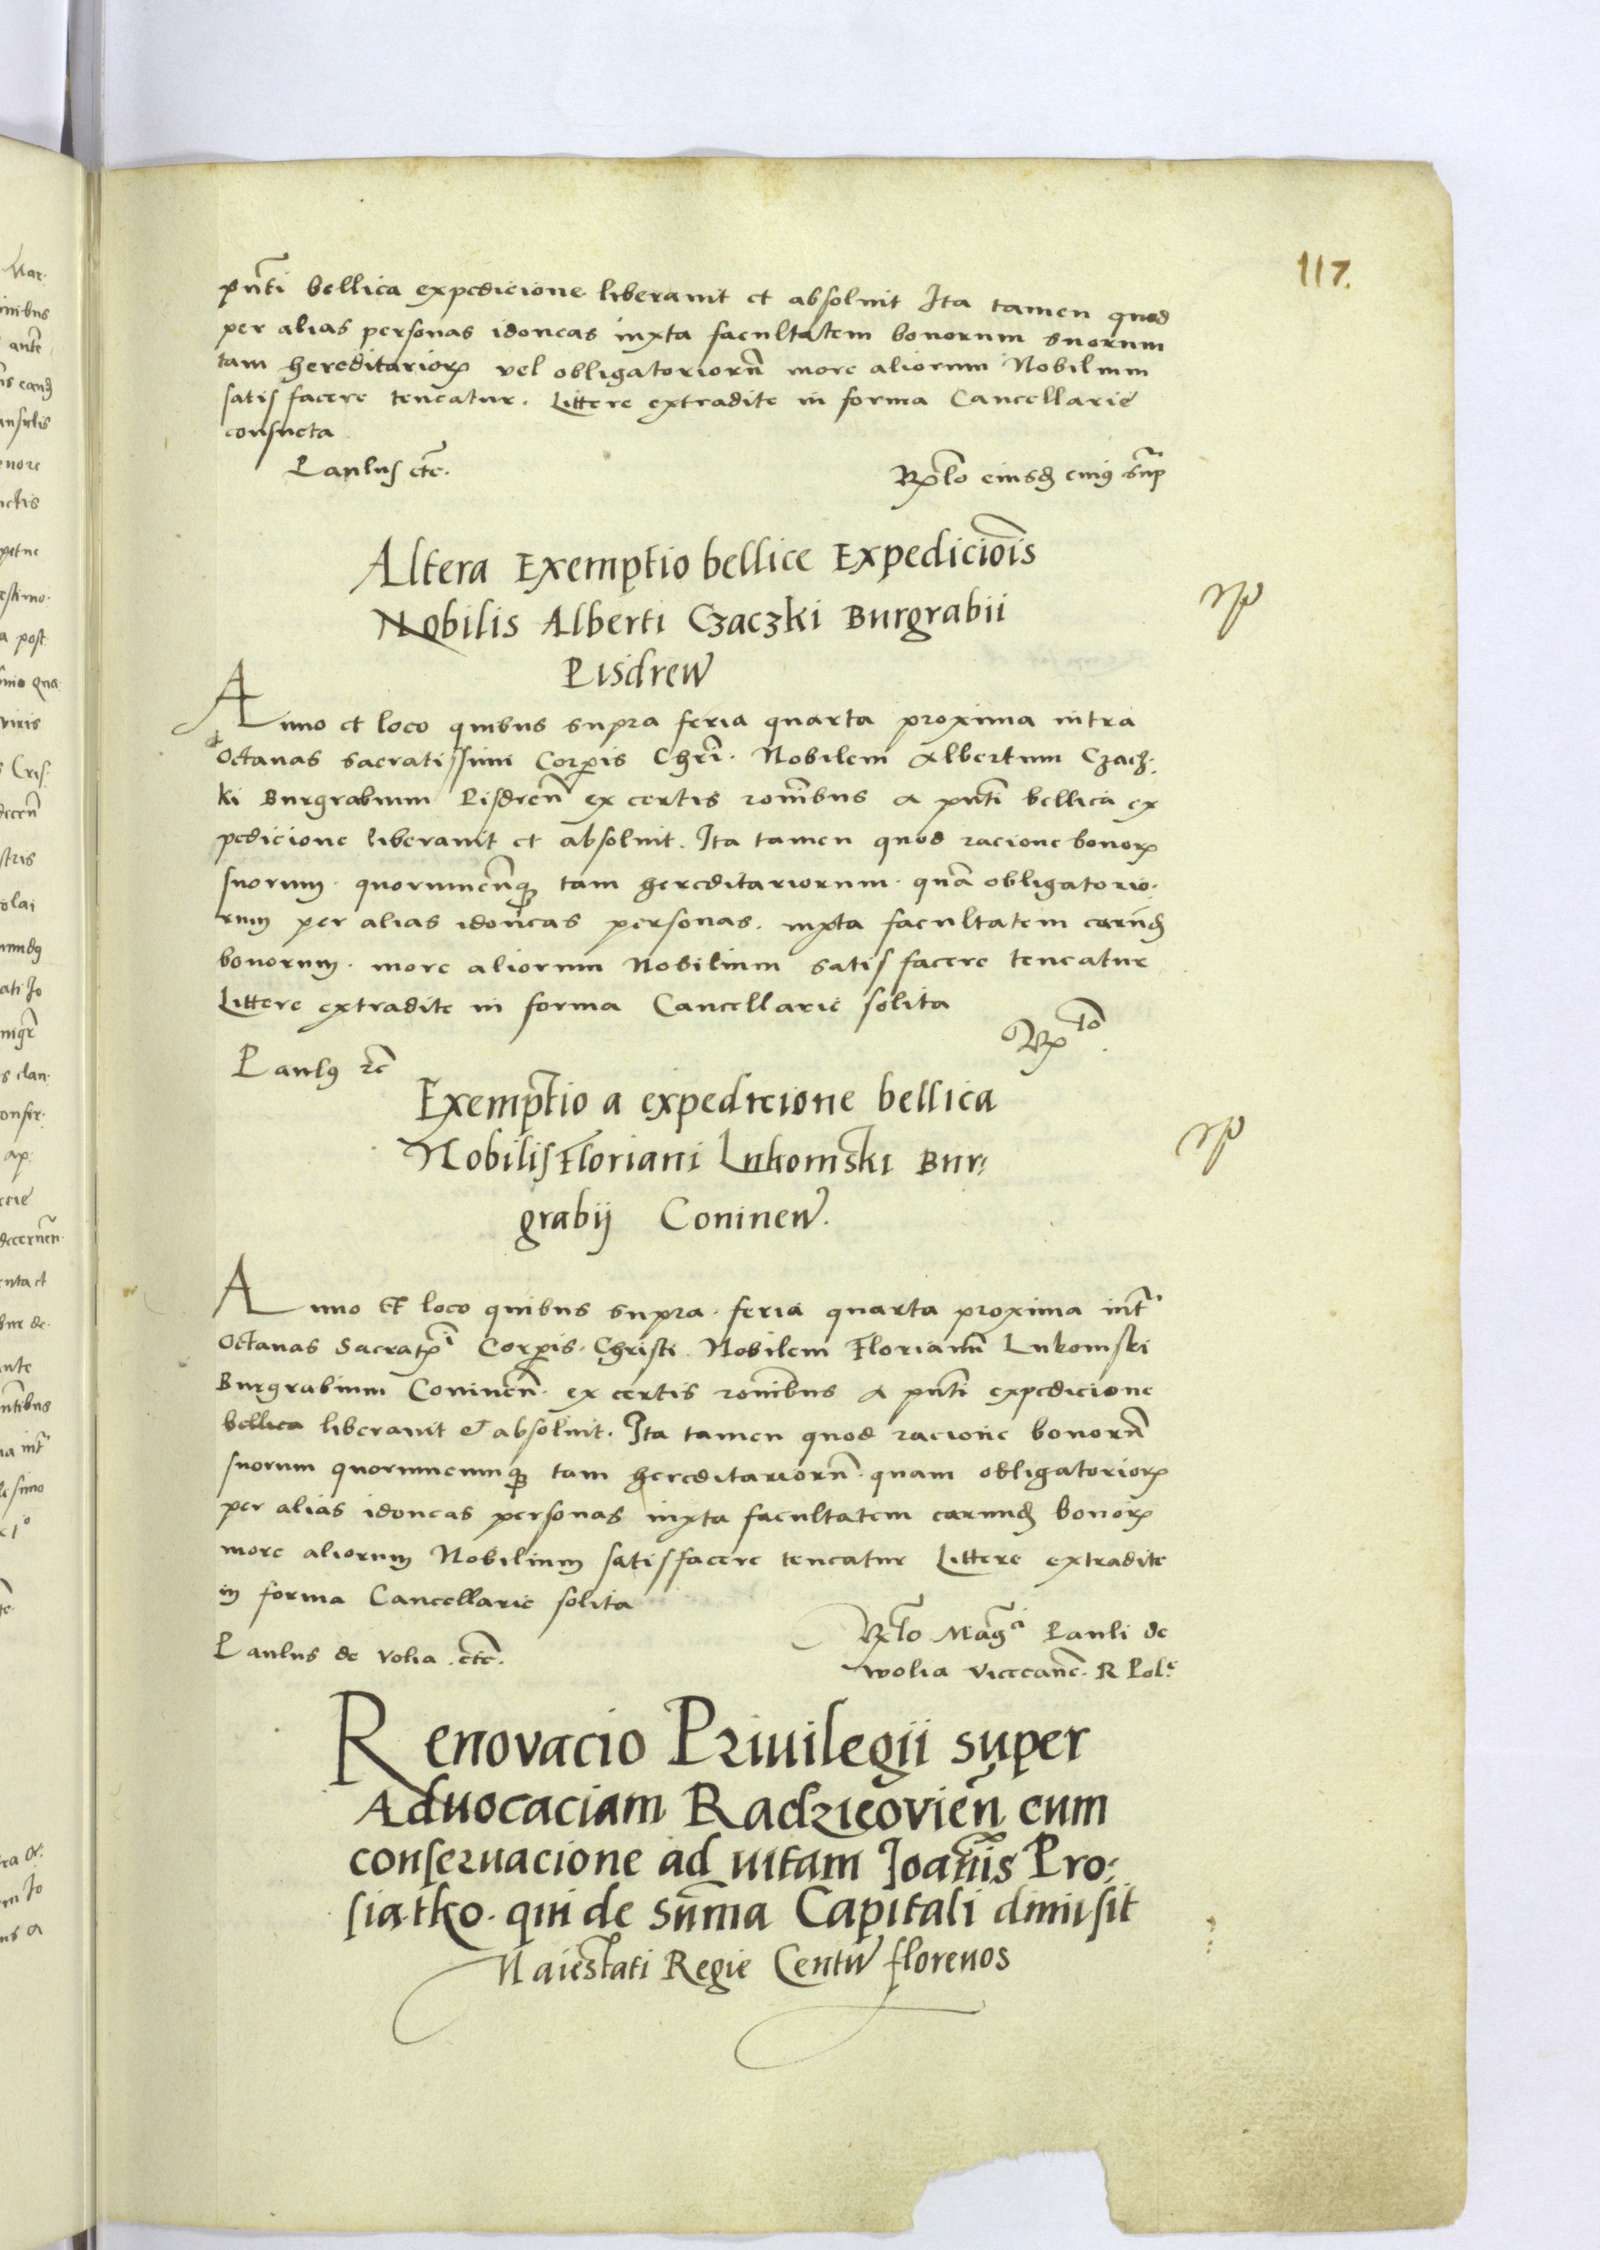 117.
pñti bellica expedicione liberauit et absoluit Ita tamen quod
per alias personas idoneas iuxta facultatem bonorum suorum
tam hereditarior̄ vel obligatoriorū more aliorum Nobilium
satisfacere teneatur. Littere extradite in forma Cancellarie
consueta
Paulus etc̄.
R̄lo eiusd̄ cuiꝰ sup̄
Altera Exemptio bellice Expedicioīs
Nobilis Alberti Czaczki Burgrabii
Pisdreñ
Anno et loco quibus supra feria quarta proxima intra
Octauas sacratissimi Corp̄is Chrī. Nobilem Albertum Czacz-
ki Burgrabium Pisdreñ ex certis rōnibus a pñti bellica ex
pedicione liberauit et absoluit. Ita tamen quod racione bonor̄
suorum quorumcūq̄ tam hereditariorum quā obligatorio-
rum per alias idoneas personas. iuxta facultatem earūd̄
bonorum. more aliorum Nobilium satisfacere teneatur
Littere extradite in forma Cancellarie solita
R̄lo.
Paulꝰ etc̄
Exemptio a expedicione bellica
Nobilis Floriani Lukomski Bur-
grabij Conineñ.
Anno et loco quibus supra. feria quarta proxima int̄
Octauas Sacratiᵐⁱ Corp̄is Christi. Nobilem Florianū Lukomski
Burgrabium Conineñ. ex certis rōnibus a pñti expedicione
bellica liberauit & absoluit. Ita tamen quod racione bonorū
suorum quorumcumq̄ tam hereditariorū. quam obligatorior̄
per alias idoneas personas iuxta facultatem earumd̄ bonor̄
more aliorum Nobilium satisfacere teneatur Littere extradite
in forma Cancellarie solita
R̄lo Mag̃ᶜⁱ Pauli de
Paulus de Volia etc̄.
wolia vicecanc̄. R Polᵉ
Renovacio Priuilegii super
Aduocaciam Radzieovieñ cum
conseruacione ad uitam Joannis Pro-
siatko. qui de Sūma Capitali dimisit
Maiestati Regie Centū florenos